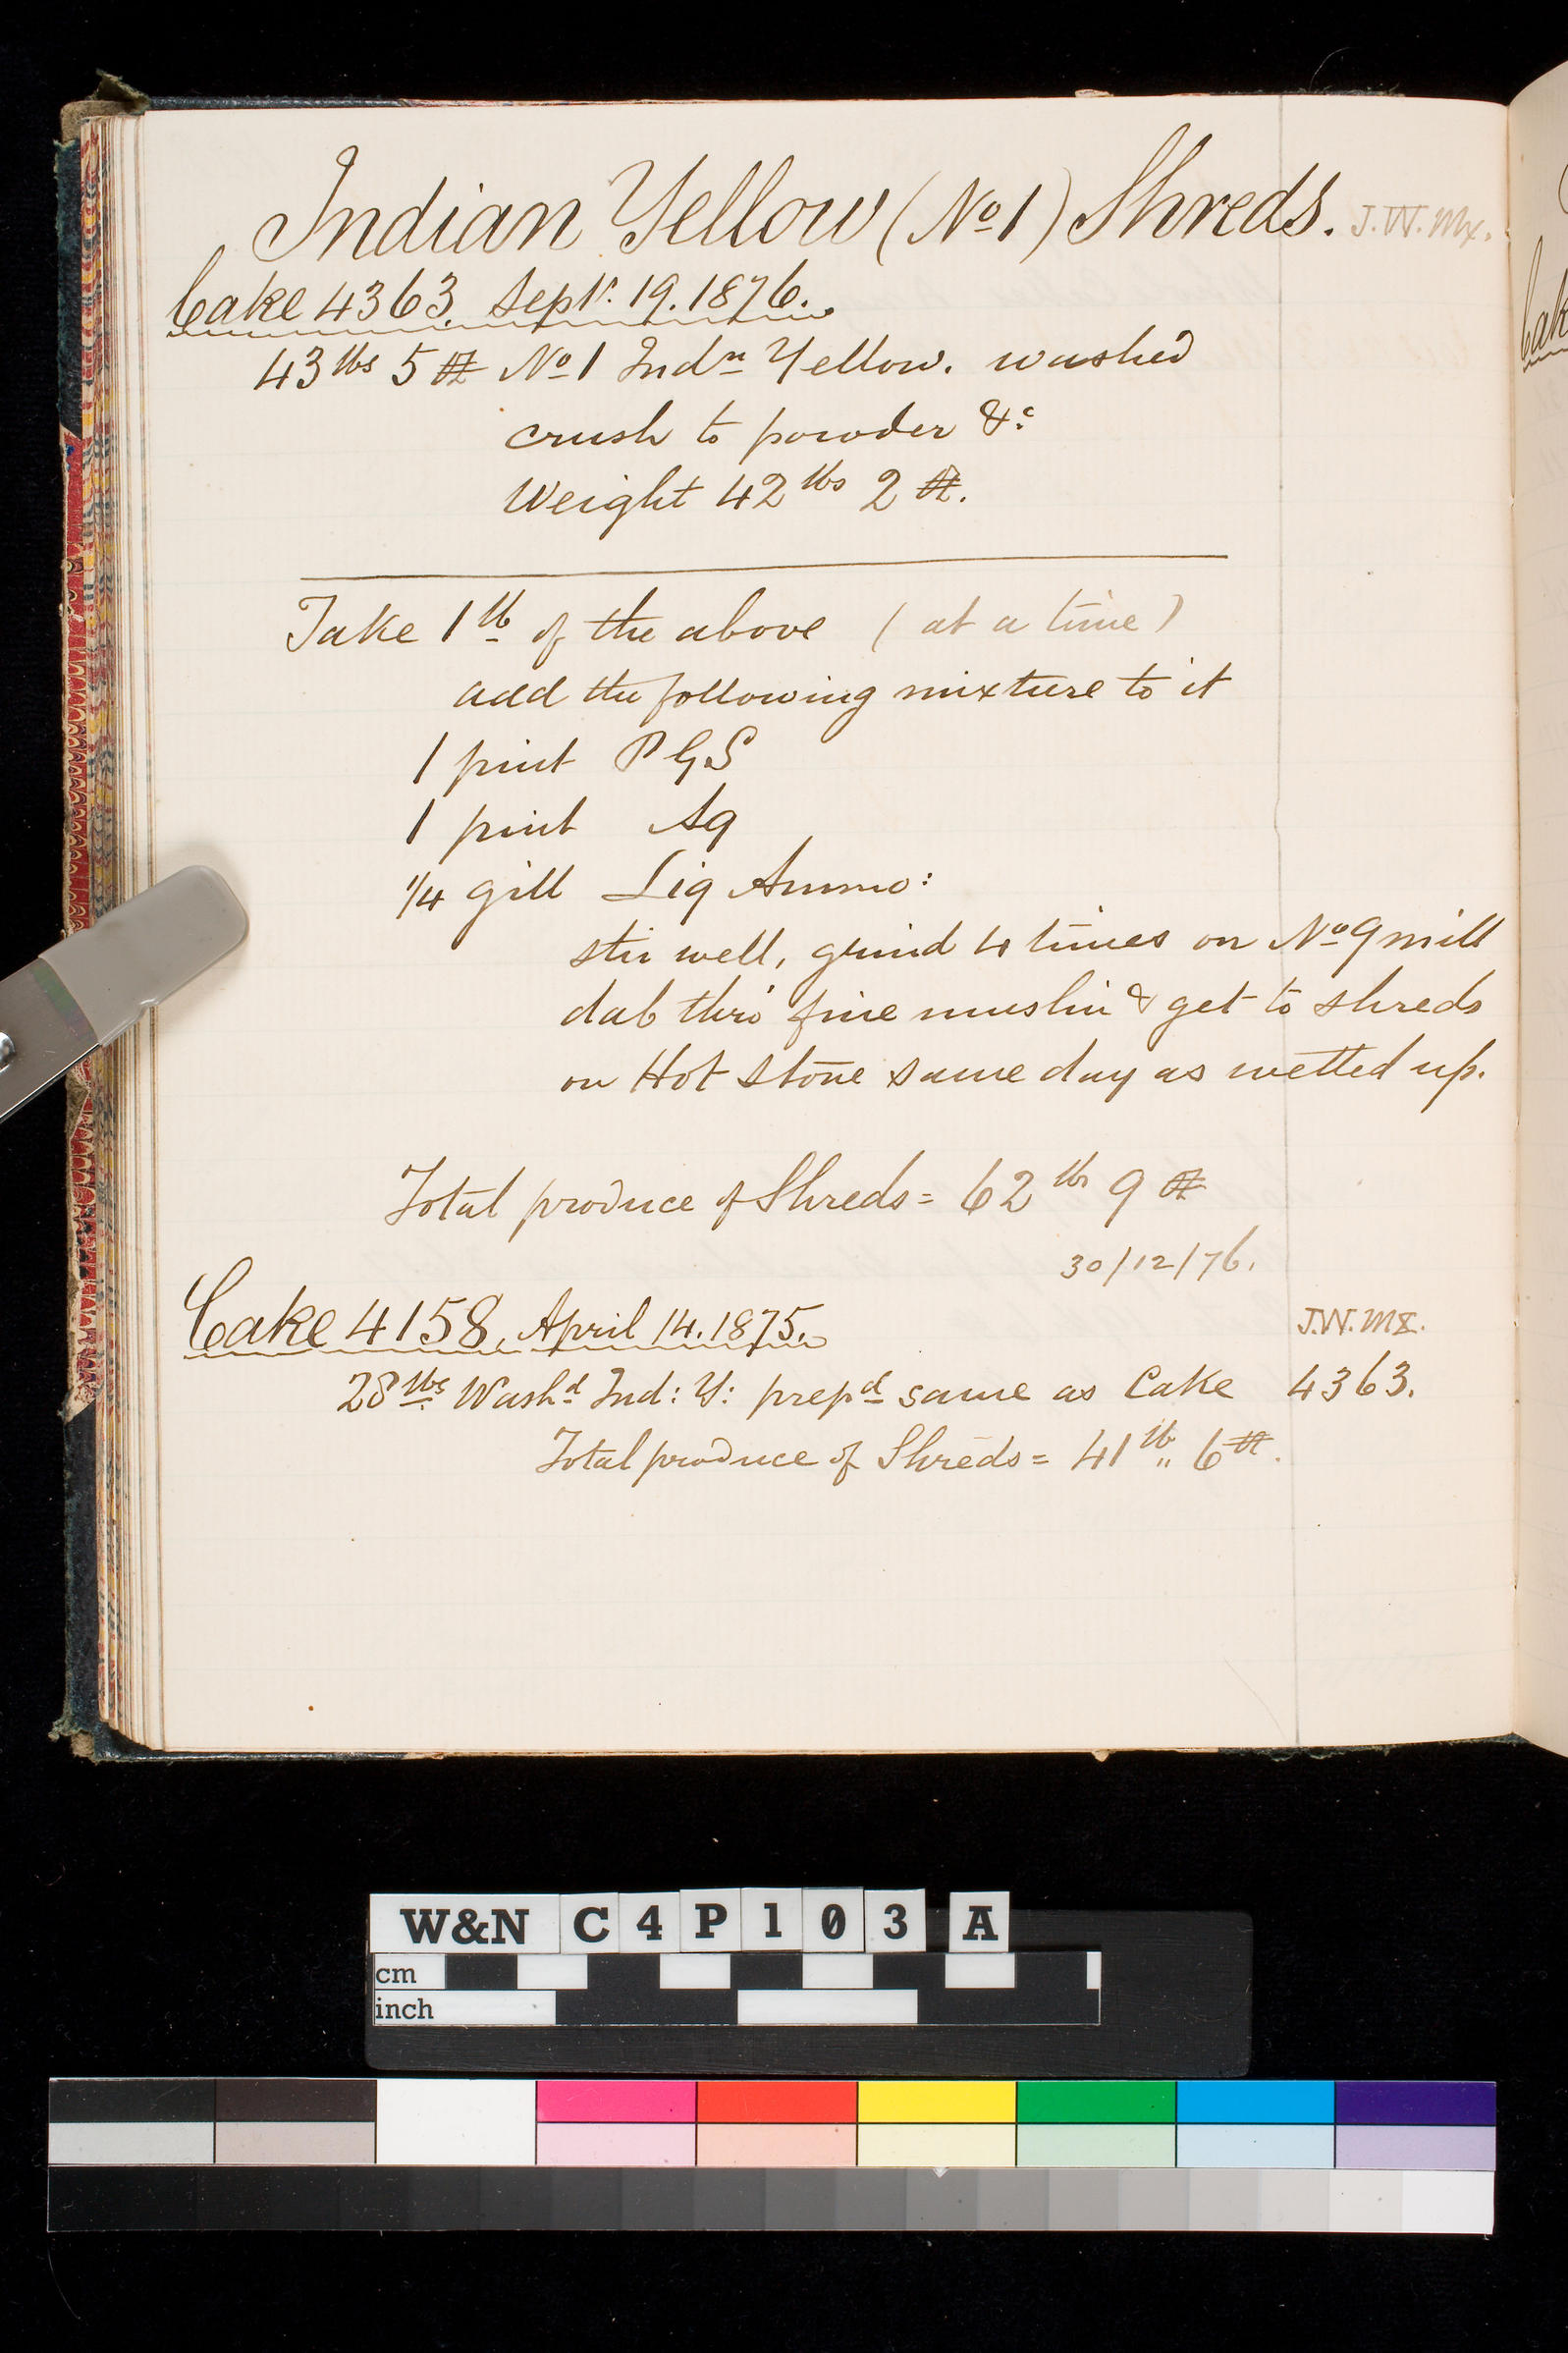 Indian Yellow (No 1) Shreds. J.W.Mx.
Cake 4363. Septr. 19. 1876.
43 lbs 5 oz No 1 Indn Yellow. washed
crush to powder &c
Weight 42 lbs 2 oz.
Take 1 lb of the above (at a time)
add the following mixture to it
1 pint PGS
1 pint Aq
1/4 gill Liq Ammo:
stir well, grind 4 times on No 9 mill
dab thro' fine muslin & get to shreds
on Hot stone same day as wetted up.
Total produce of Shreds = 62 lbs 9 oz
30/12/76.
Cake 4158, April 14. 1875. J.W.MX.
28 lbs Washd Ind: Y: prepd same as Cake 4363.
Total produce of Shreds = 41 lb,, 6 oz.
Cak
W&N C4P103 A
cm
inch